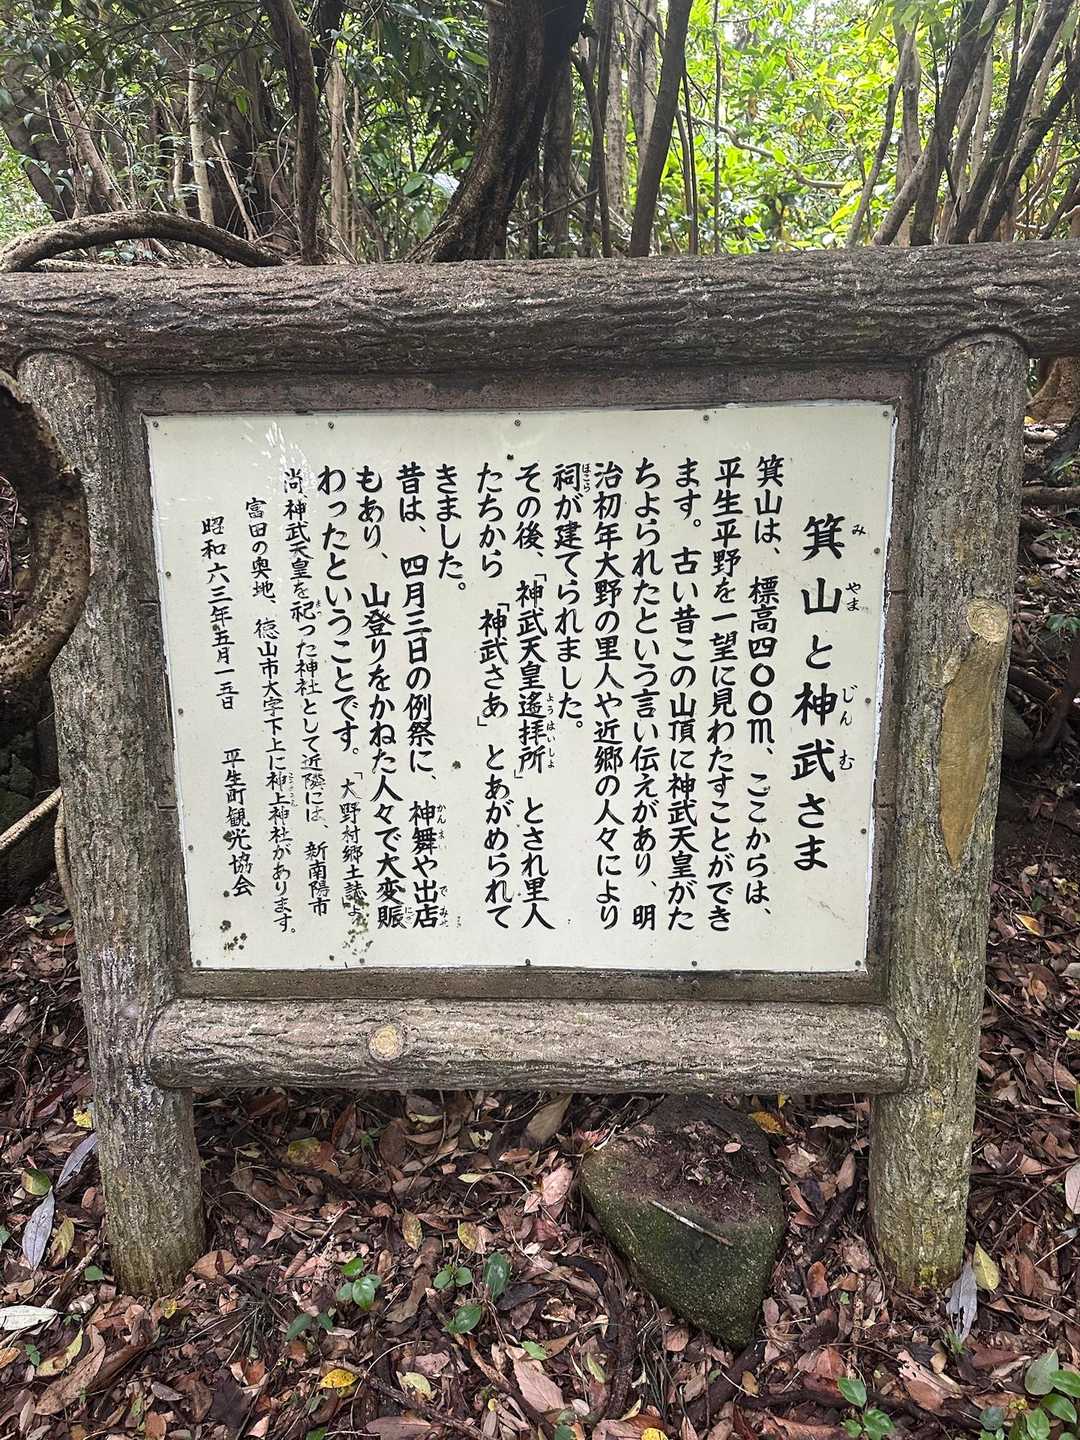 箕山と神武さま
箕山は、標高四〇〇m、ここからは、
平生平野を一望に見わたすことができ
ます。古い昔この山頂に神武天皇がた
ちよられたという言い伝えがあり、明
治初年大野の里人や近郷の人々により
祠が建てられました。
その後、「神武天皇遙拝所」とされ里人
たちから「神武さあ」とあがめられて
きました。
昔は、四月三日の例祭に、神舞や出店
もあり、山登りをかねた人々で大変賑
わったということです。「大野村郷土誌より」
尚神武天皇を祀った神社として近隣には、新南陽市
富田の奥地、徳山市大字下上に神上神社があります。
昭和六三年五月一五日　平生町観光協会